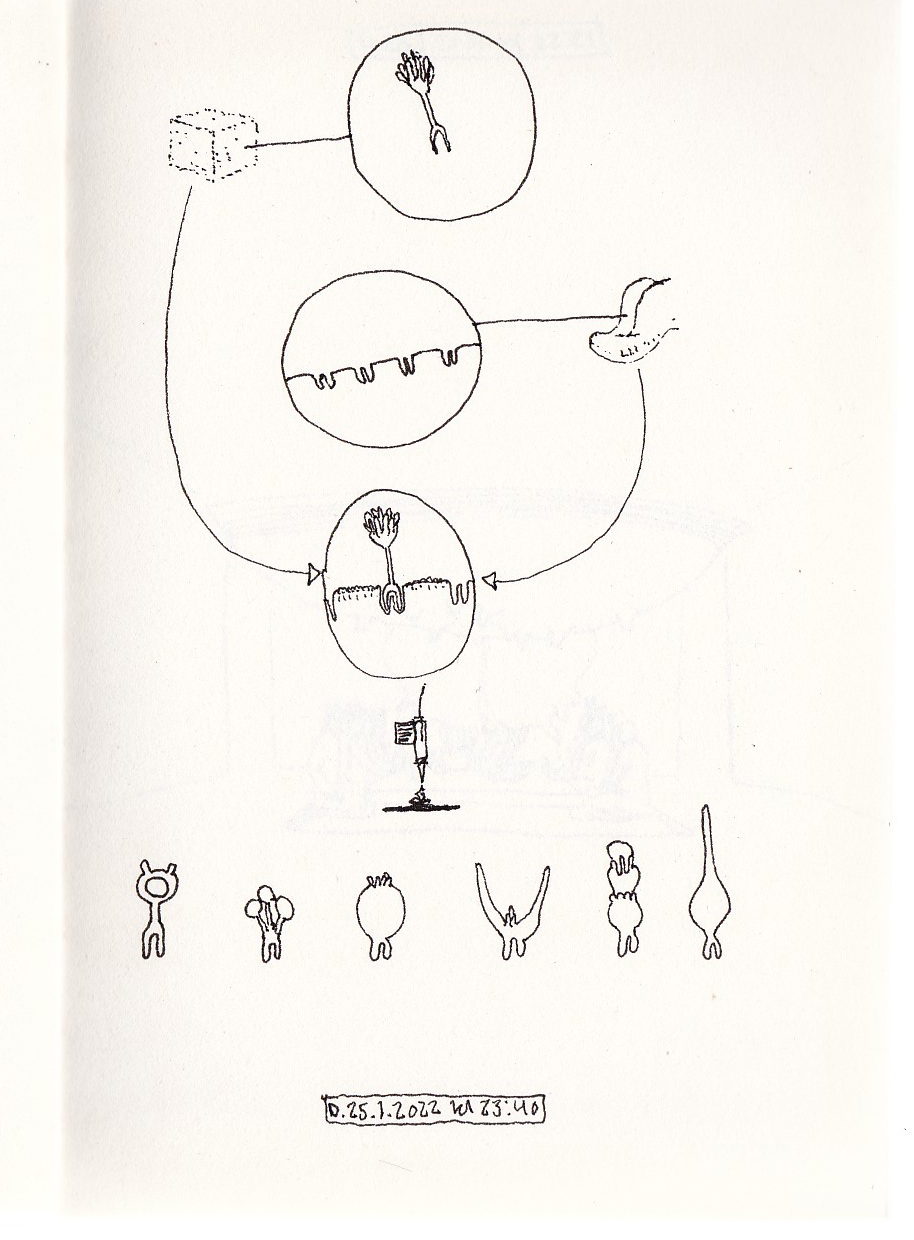 D.25.1.2022 kl 23:40